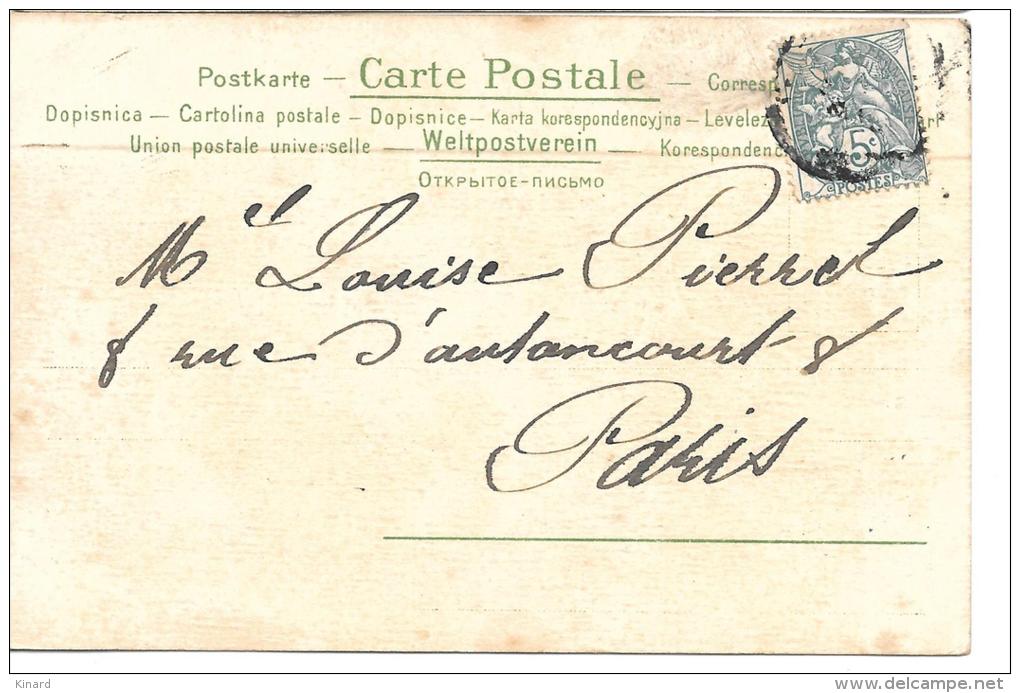 Postkarte — Carte Postale — Corresp
Dopisnica — Cartolina postale — Dopisnice — Karta korespondencyjna — Levelez
Union postale universelle — Weltpostverein — Korespondenc
Открытое-письмо
5c
POSTES
Mel Louise Pierrel
8 rue d'autancourt 8
Paris
Kinard
delcampe.net